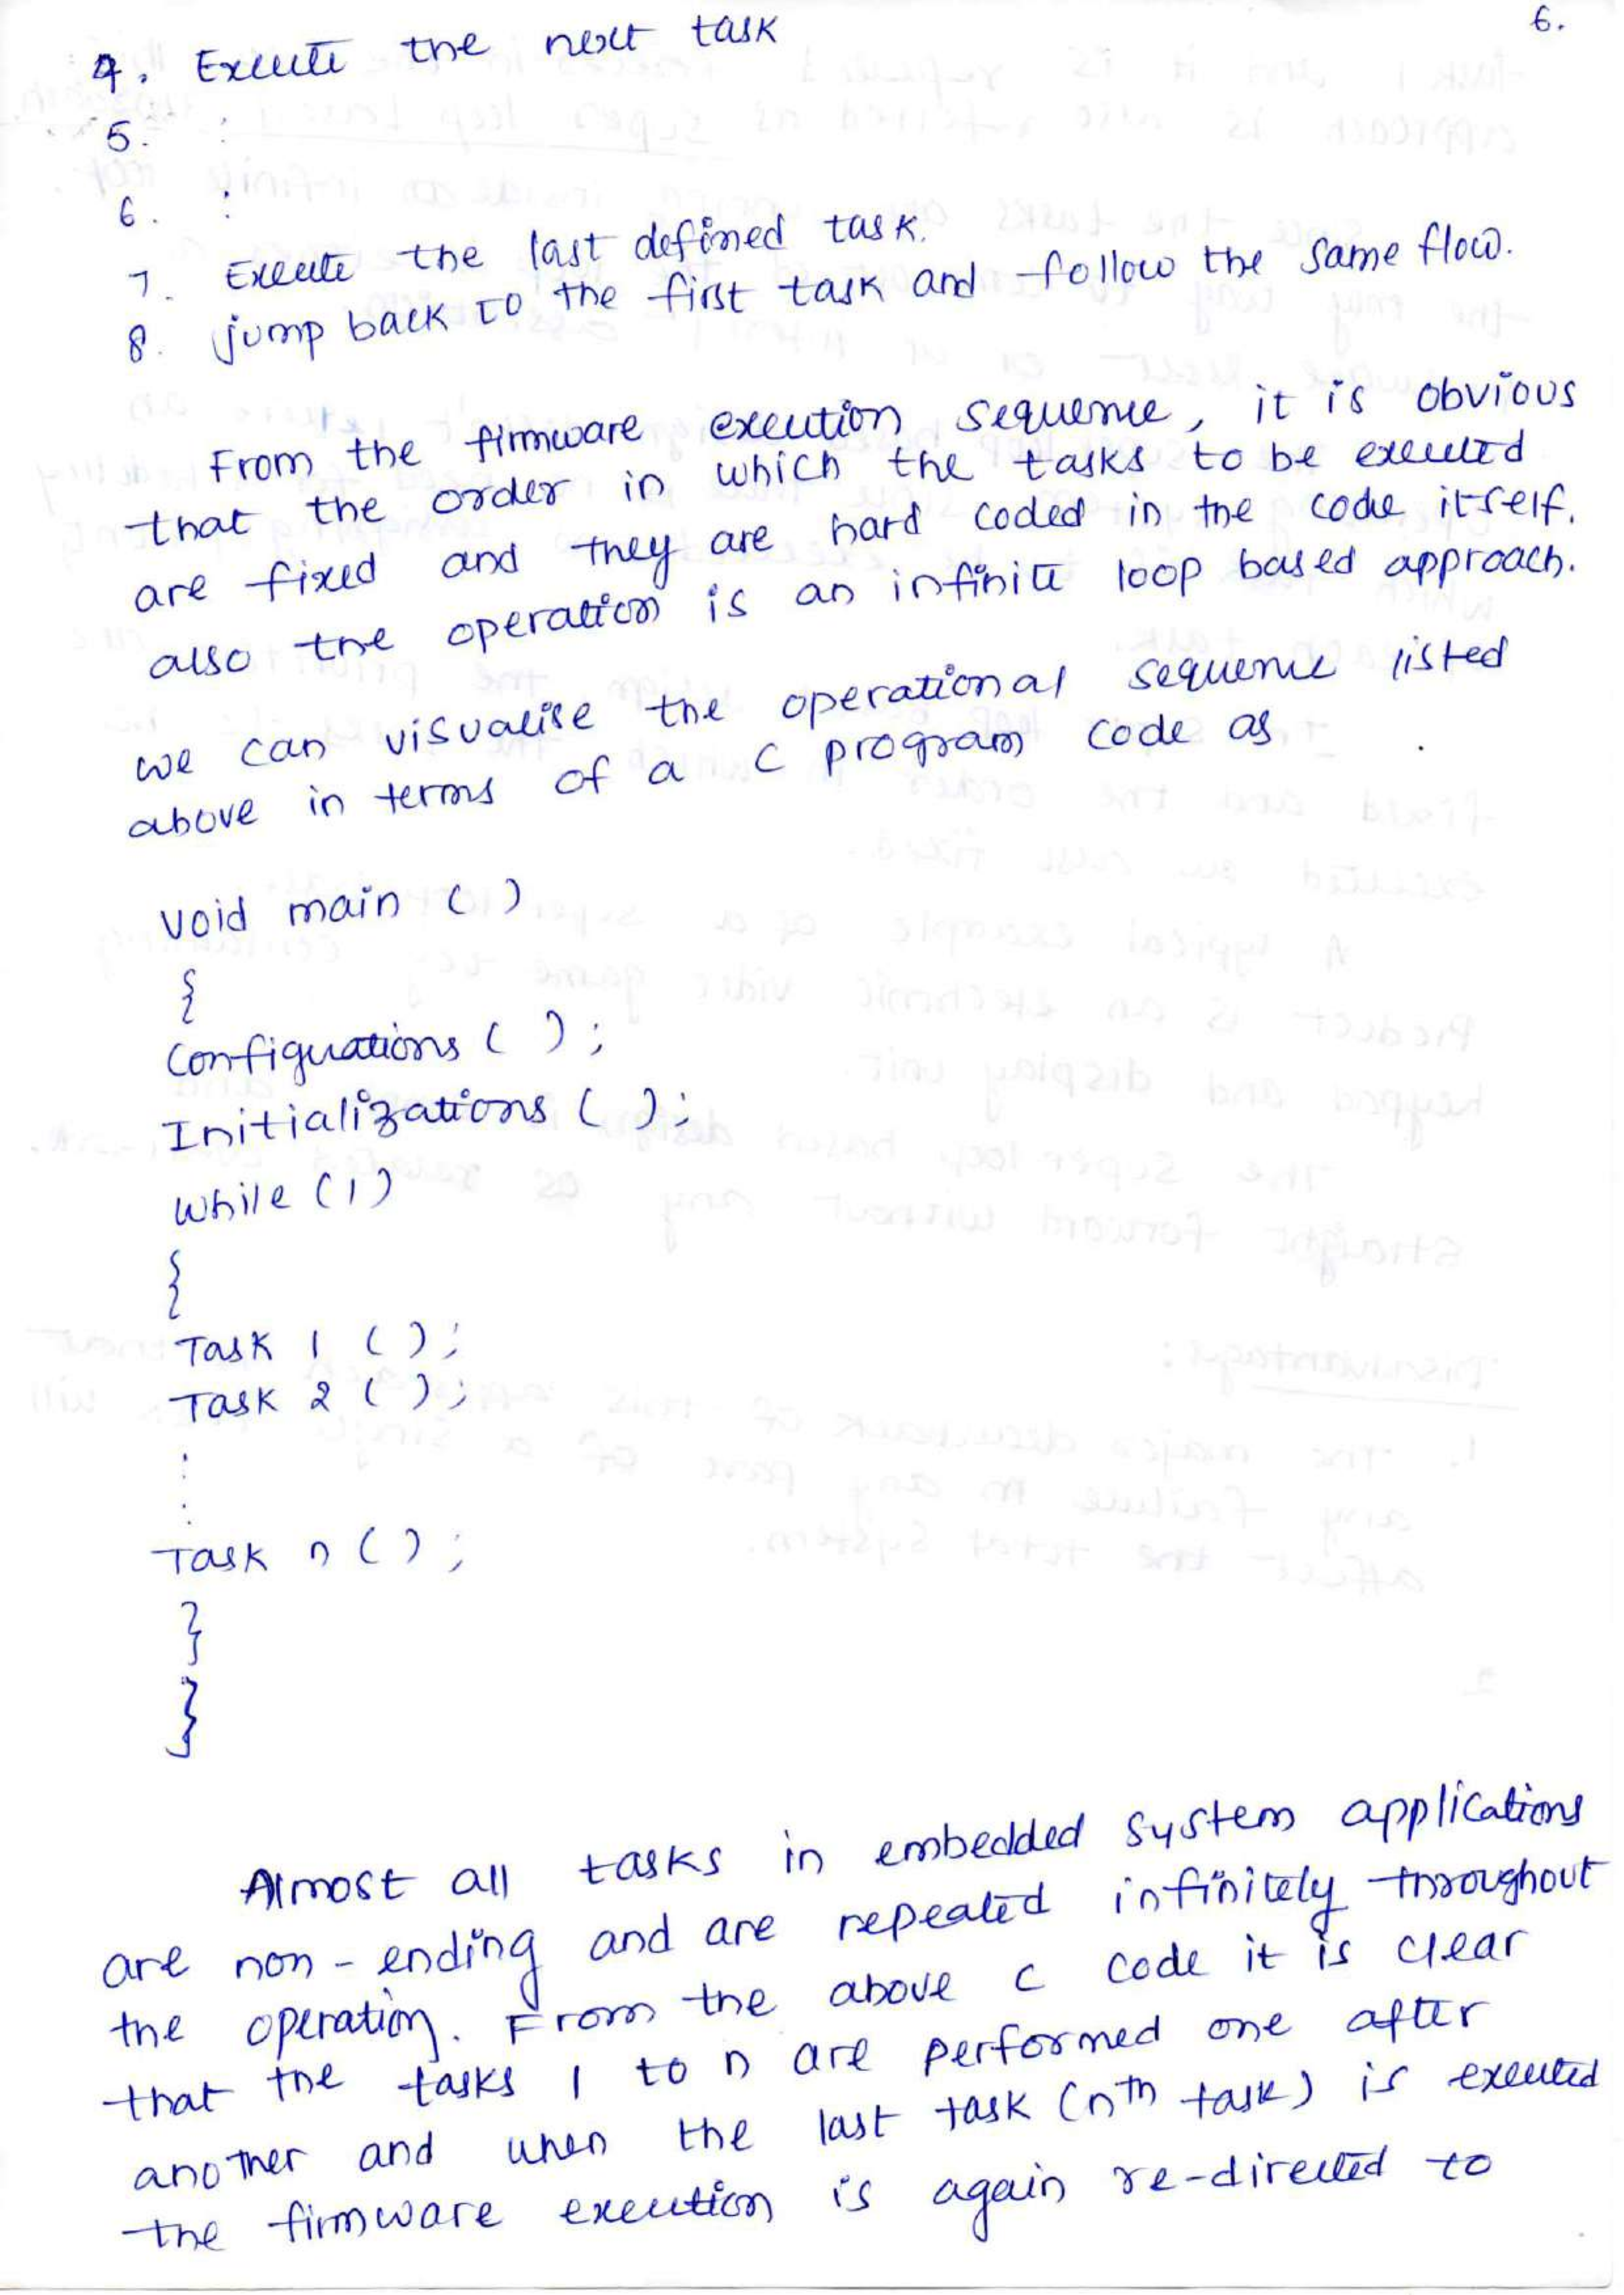 6.
4. Execute the next task
5. :
6. :
7. Execute the last defined task.
8. jump back to the first task and follow the same flow.
From the firmware execution sequence, it is obvious
that the order in which the tasks to be executed
are fixed and they are hard coded in the code itself.
also the operation is an infinite loop based approach.
we can visualise the operational sequence listed
above in terms of a C program code as
void main ( )
{
Configurations ( ) ;
Initializations ( ) ;
while (1)
{
Task 1 ( ) ;
Task 2 ( ) ;
:
:
Task n ( ) ;
}
}
Almost all tasks in embedded system applications
are non-ending and are repeated infinitely throughout
the operation. From the above C code it is clear
that the tasks 1 to n are performed one after
another and when the last task (nth task) is executed
the firmware execution is again re-directed to